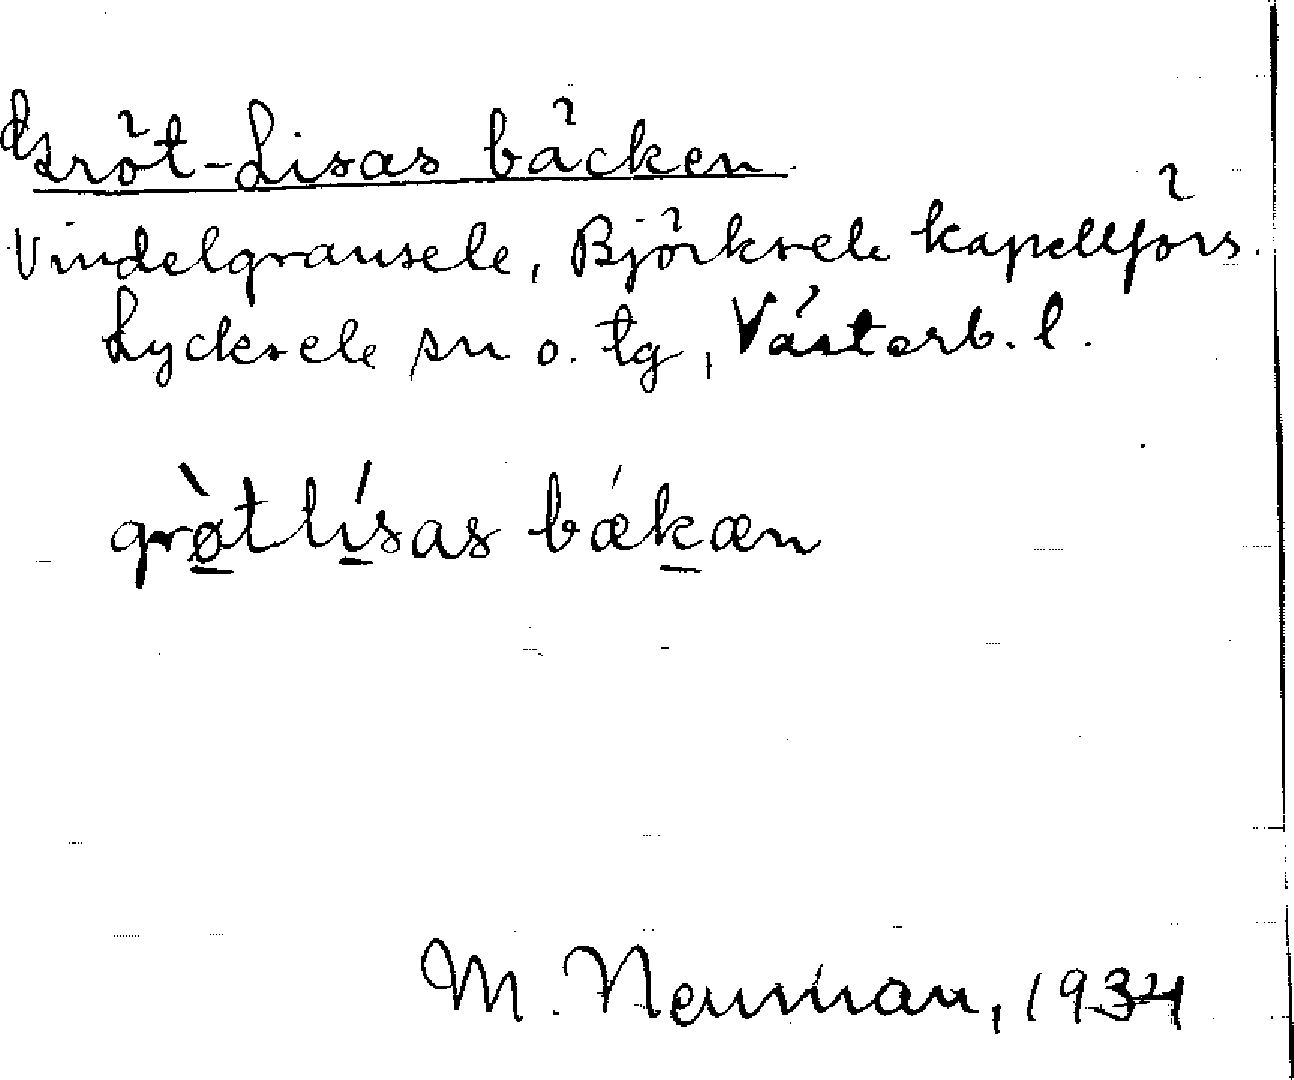 Gröt-Lisas bäcken
Vindelgransele, Björksele kapellförs.
Lycksele sn o. tg, Västerb. l.
grø̀tlísas bǽkæn
M. Neuman, 1934